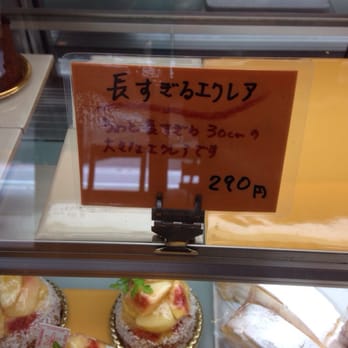 長すぎるエクレア
ちょっと長すぎる 30cmの
大きなエクレアです
290円